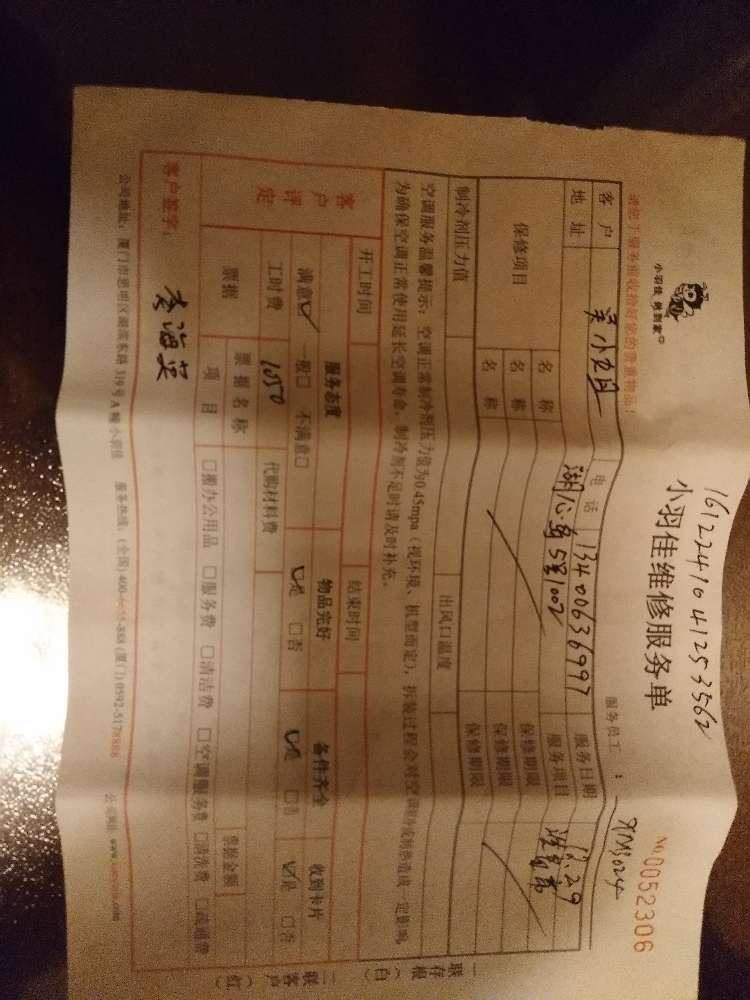 16122410412533562
小羽佳维修服务单
小羽佳 俐到家
NO.0052306
请您于服务前收拾好您的贵重物品！
服务员工：XM3024
客户 电话 13400636997 服务日期 12.29
地址 湖心岛5号1002 服务项目
保修项目 名称 保修期限
名称 保修期限
名称 保修期限
制冷剂压力值 出风口温度
空调服务温馨提示：空调正常制冷剂压力值为0.45mpa（视环境、机型而定），拆装过程会对空调制冷或制热造成一定影响，
为确保空调正常使用延长空调寿命，制冷剂不足时请及时补充。
开工时间 结束时间
客户评定 服务态度 物品完好 备件齐全 收到卡片
满意☑ 一般□ 不满意□ ☑是 □否 ☑是 □否 ☑是 □否
工时费 1050 代购材料费
票据 票据名称 票据金额
项目 □搬办公用品 □服务费 □清洁费 □空调服务费 □清洗费 □疏通费
客户签字：李海英
公司地址：厦门市思明区湖滨东路319号A幢小羽佳 服务热线：(全国)400-6655-888 (厦门)0592-5178888 公司网址
一联存根（白）
二联客户（红）